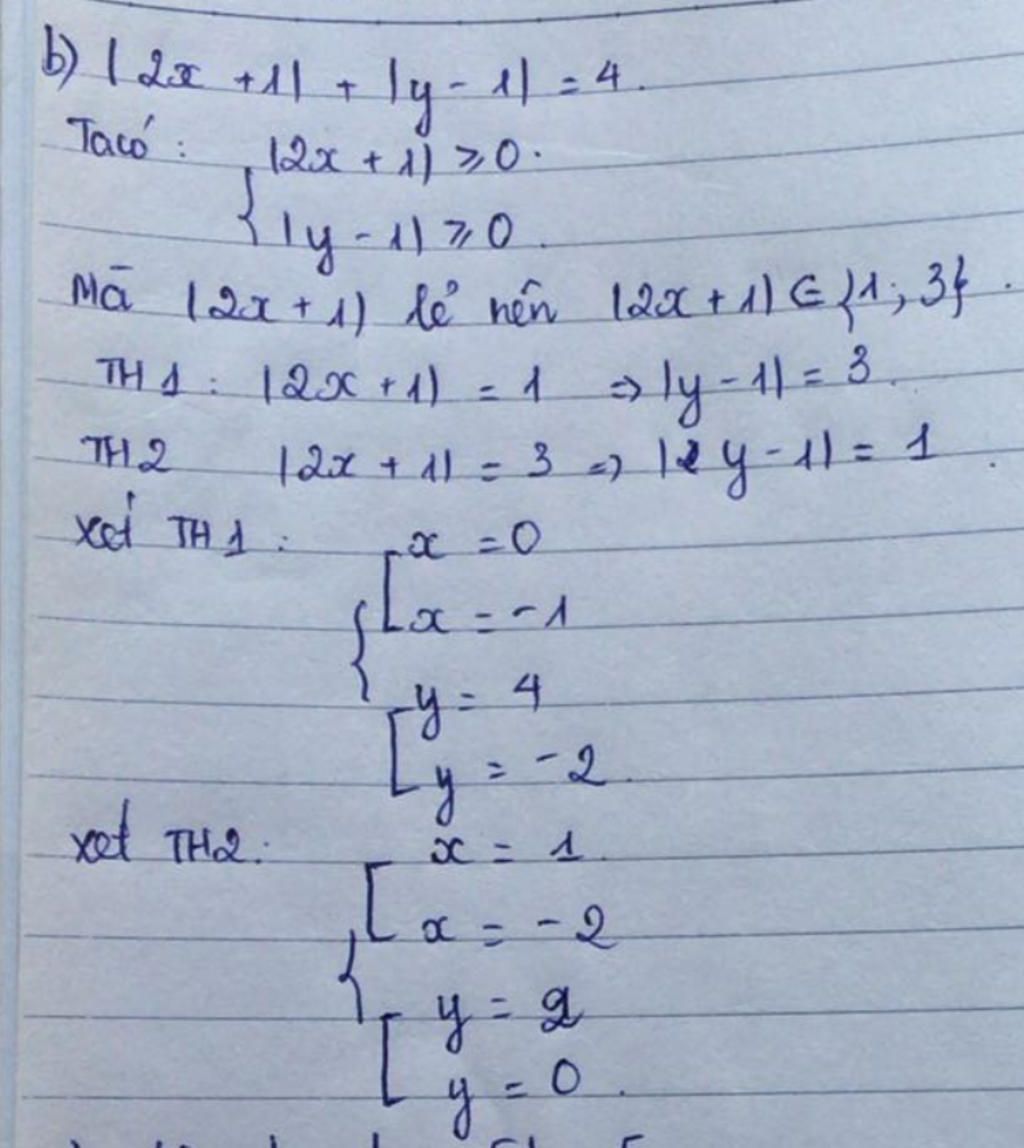 b) |2x + 1| + |y - 1| = 4.
Ta có : |2x + 1| ⩾ 0.
{ |y - 1| ⩾ 0.
Mà |2x + 1| lẻ nên |2x + 1| ∈ {1; 3}.
TH1 : |2x + 1| = 1 ⇒ |y - 1| = 3.
TH2 |2x + 1| = 3 ⇒ |y - 1| = 1.
xét TH1 : [ x = 0
{ [ x = -1
[ y = 4
[ y = -2.
xét TH2. x = 1.
[ x = -2
{ [ y = 2
[ y = 0.